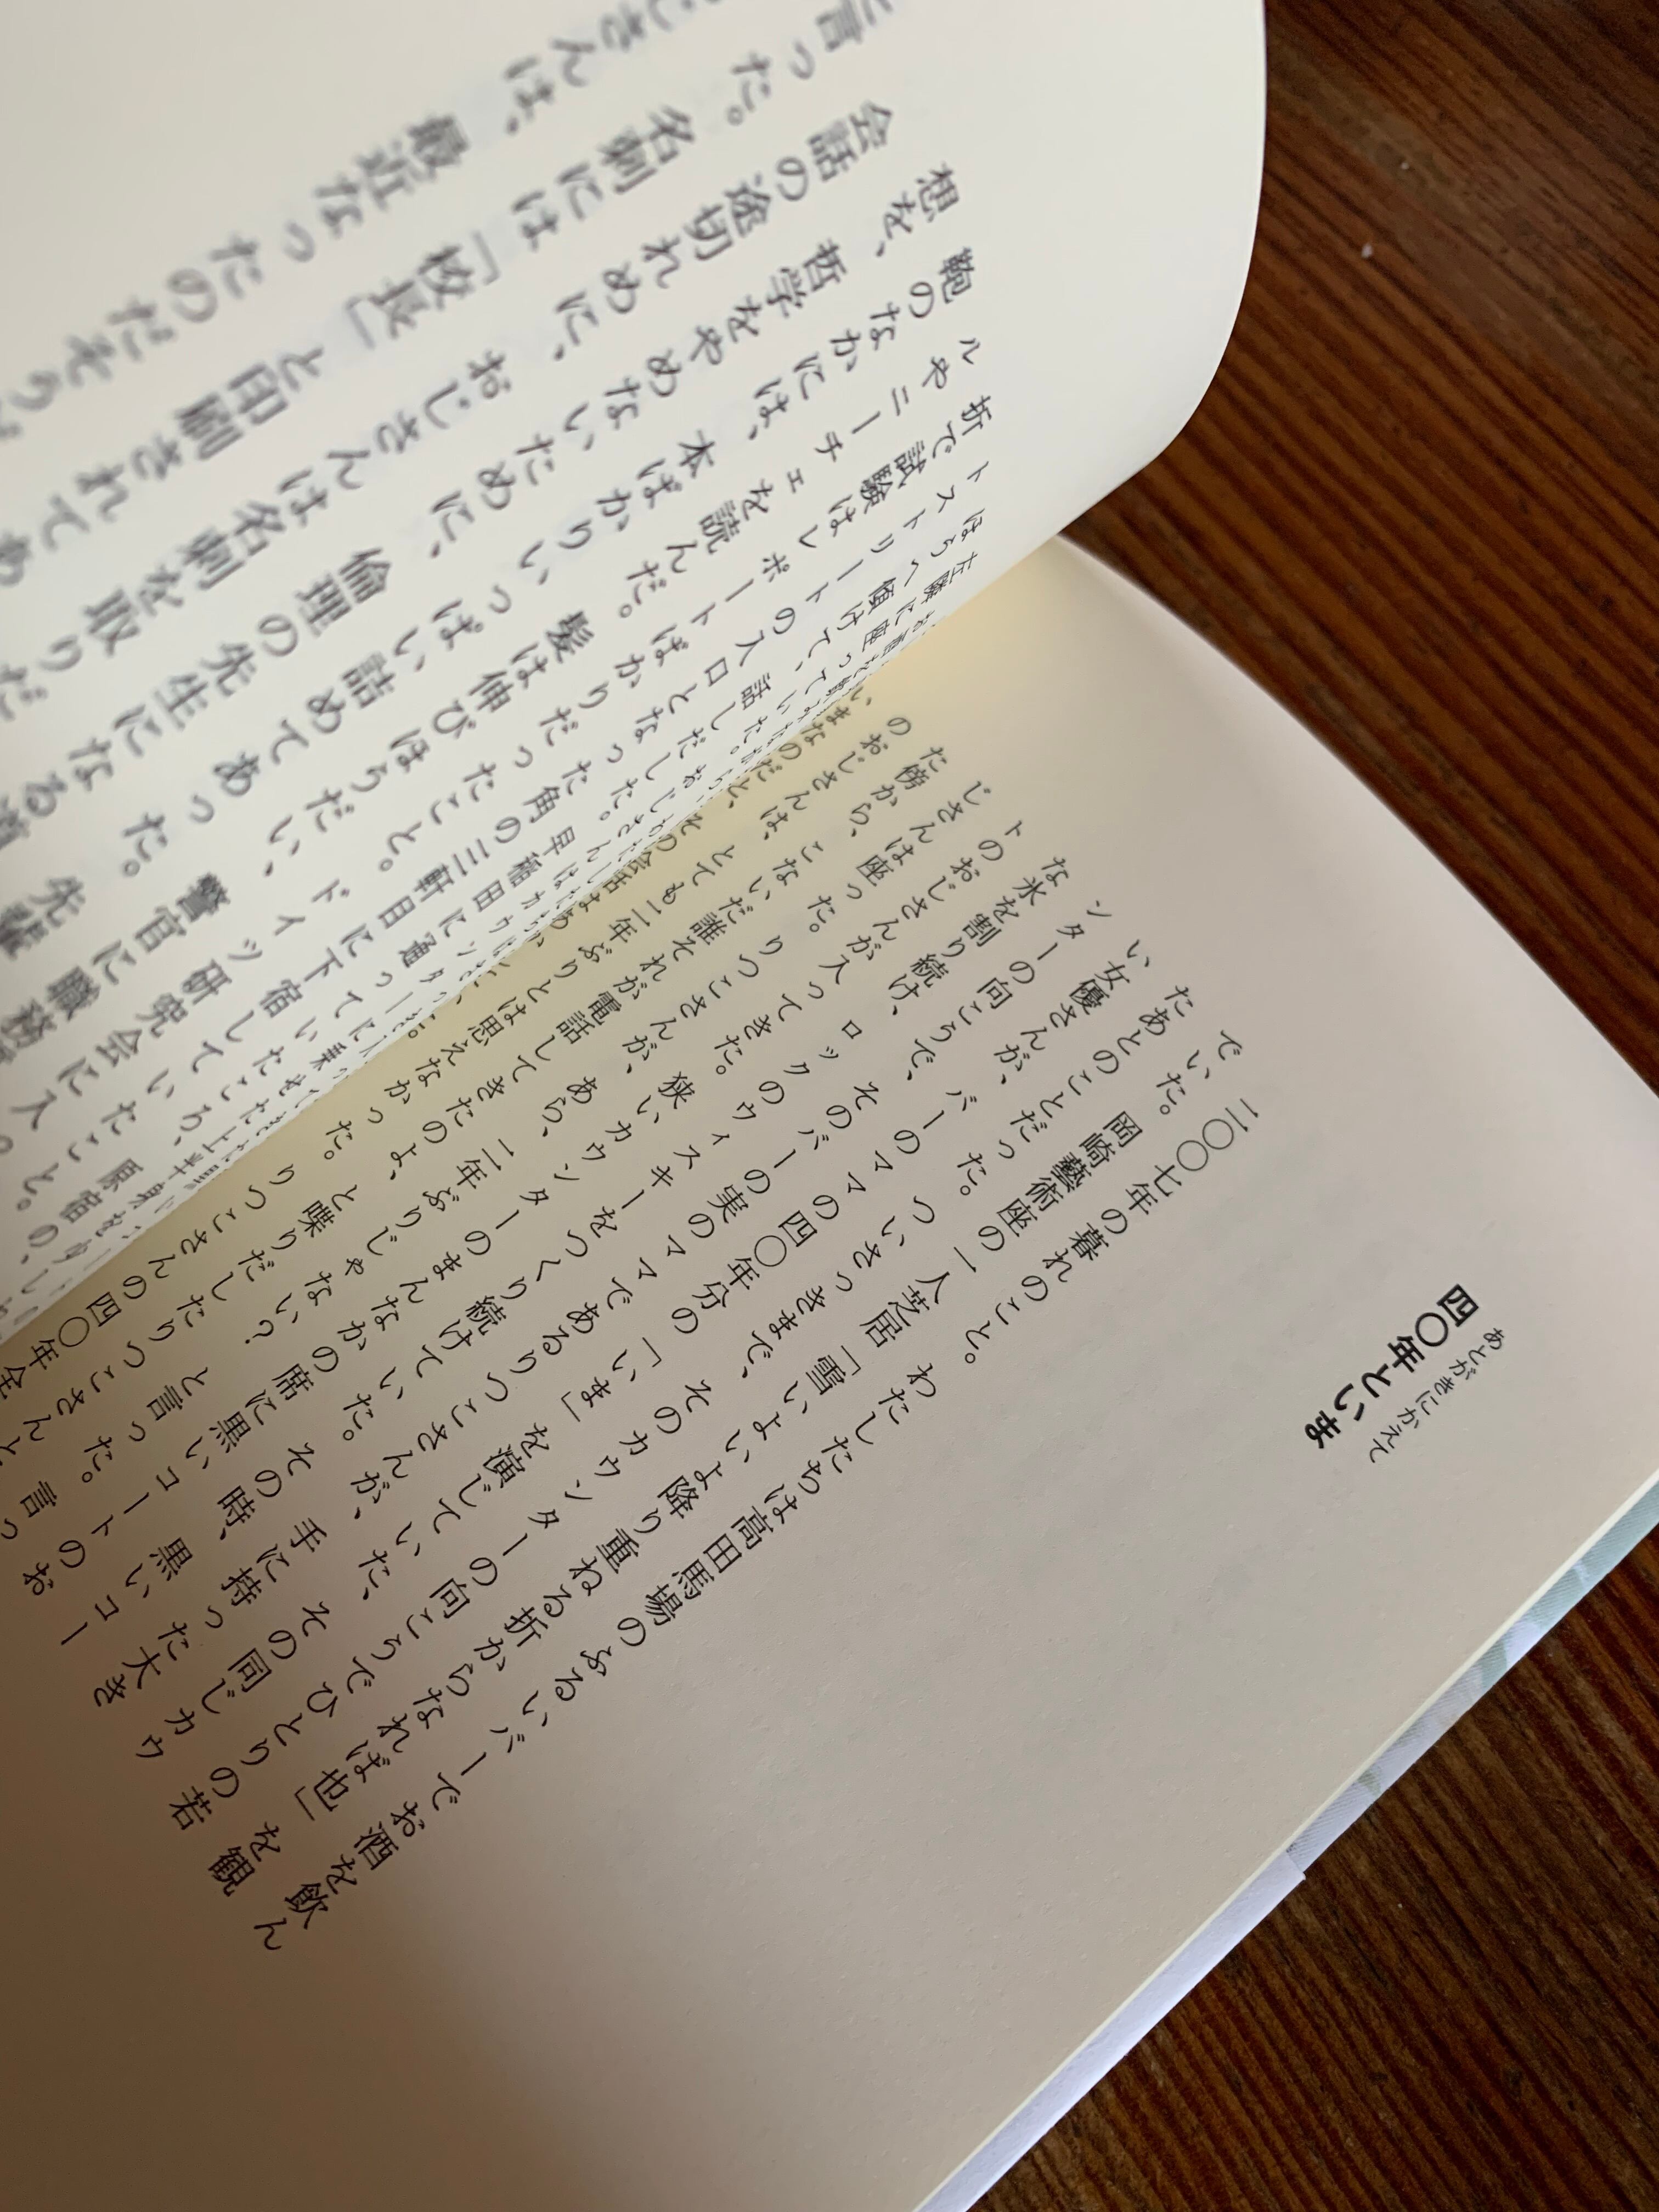 四〇年といま
あとがきにかえて
二〇〇七年の暮れのこと。わたしたちは高田馬場のふるいバーでお酒を飲ん
でいた。岡崎藝術座の一人芝居「雪いよいよ降り重ねる折からなれば也」を観
たあとのことだった。ついさっきまで、そのカウンターの向こうでひとりの若
い女優さんが、バーのママの四〇年分の「いま」を演じていた、その同じカウ
ンターの向こうで、そのバーの実のママであるりつこさんが、手に持った大き
な氷を割り続け、ロックのウィスキーをつくり続けていた。その時、黒いコー
トのおじさんが入ってきた。狭いカウンターのまんなかの席に黒いコートのお
じさんは座った。りつこさんが、あら、二年ぶりじゃない? と言った。言っ
た傍から、こないだ誰それが電話してきたのよ、と喋りだしたりつこさんと
のおじさんは、とても二年ぶりとは思えなかった。りつこさんの四〇年全
いまなのだと、
左隣に座って
ほうへ傾けて、話しだした。早稲田に通っていたころ、原宿の、
トストリートの入口となった角の三軒目に下宿していたこと。
折で試験はレポートばかりだったこと。ドイツ研究会に入
ルやニーチェを読んだ。髪は伸びほうだい、警官に職務
鞄のなかには、本ばかりいっぱい詰めてあった。先輩
想を、哲学をやめないために、倫理の先生になる道
会話の途切れめに、おじさんは名刺を取りだ
と言った。名刺には「校長」と印刷されてあ
じさんは、最近なったのだそう